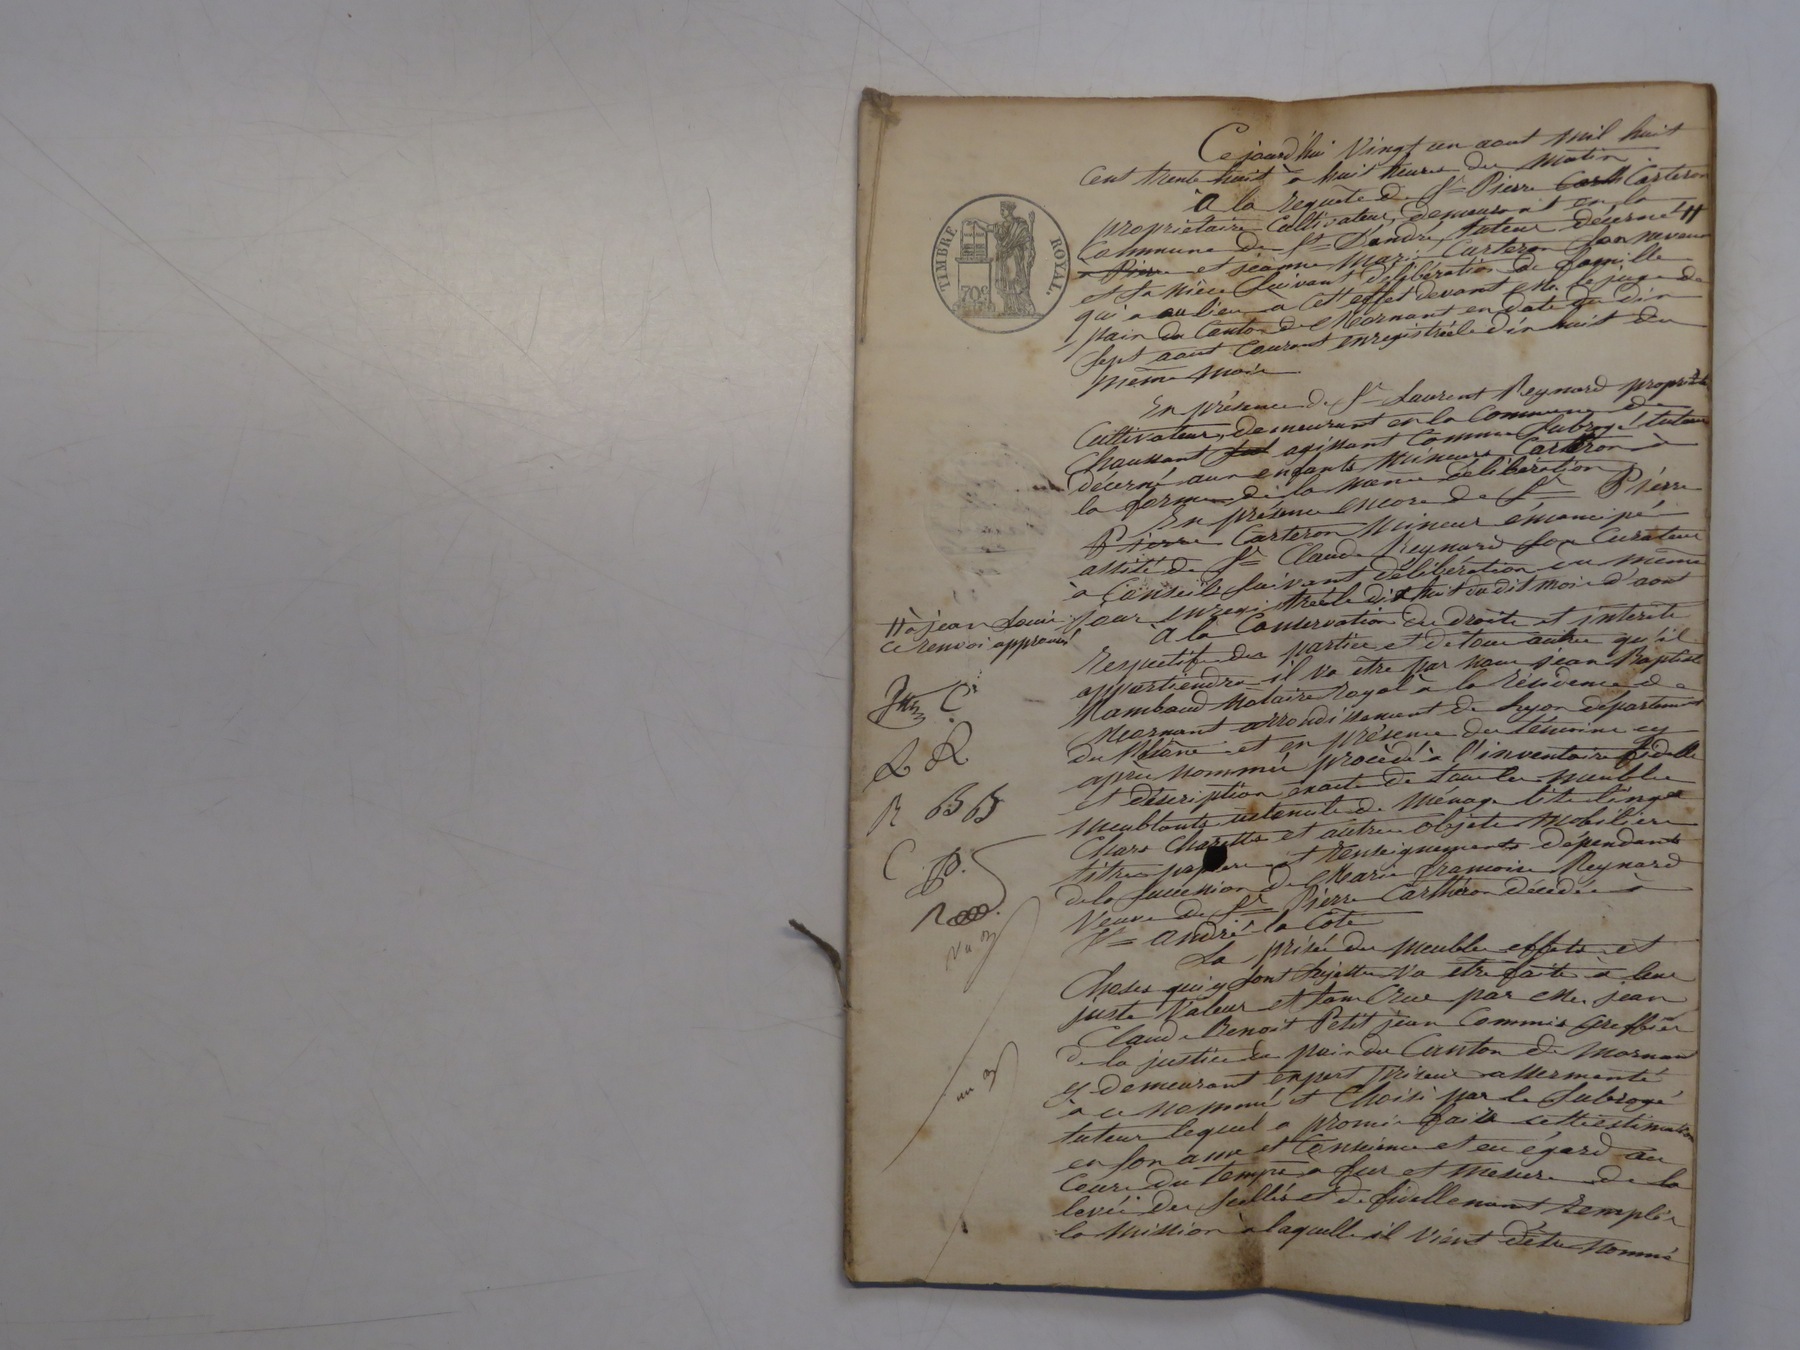 Ce jourd'hui Vingt un aout mil huit
Cent trente huit à huit heures du Matin
A la requete de Sr Pierre Carteron
propriétaire Cultivateur, demeurant en la
Commune de St Andre, tuteur décerné #
et jeanne Marie Carteron Son neveu
et Sa nièce Suivant délibération de famille
qui a eu lieu a Cet effet devant Mr le juge de
paix du Canton de Mornant en date du dix
Sept aout Courant enregistrée le dix huit du
même mois
En présence de Sr Laurent Reynard proprietre
Cultivateur, demeurant en la Commune de
Chaussant agissant Comme Subrogé tuteur
décerné aux enfants Mineurs Carteron à
la forme de la meme délibération
En présence encore de Sr Pierre
Pierre Carteron Mineur émancipé
assité de Sr Claude Reynard Son Curateur
à Conseils Suivant délibération du même
jour enregistrée le dix huit du dit mois d'aout
A la Conservation des droits et intérêts
Respectifs des parties et de tous autres qu'il
appartiendra il va être par nous jean Baptiste
Rambaud Notaire royal à la résidence de
Mornant arrondissement de Lyon département
du Rhône et en présence des témoins cy
après nommés procédé à l'inventaire fidelle
et déscription exacte de tous les meubles
meublants ustensiles de Ménage lits linges
Chars Charettes et autres objets Mobiliers
titres papiers et Renseignements dépendants
de la Succession de Marie francoise Reynard
Veuve de Sr Pierre Carteron décédée à
St André la Côte
La prisée des meubles effets et
Choses qui y Sont Sujettes Va etre faite à leur
juste Valeur et Sans Crue par Mr jean
Claude Benoit Petit jean Commis Greffier
de la justice de paix du Canton de Mornant
y demeurant expert priseur assermenté
à ce nommé et Choisi par le Subrogé
tuteur lequel a promis faire cette estimation
en Son ame et Conscience et eu égard au
Cours du temps a fur et mesure de la
levée des Scellés et de fidellement remplir
la Mission à laquelle il Vient d'être nommé
# à jean Louis
Ce renvoi approuvé
L R
R B B
C
TIMBRE ROYAL.
70c